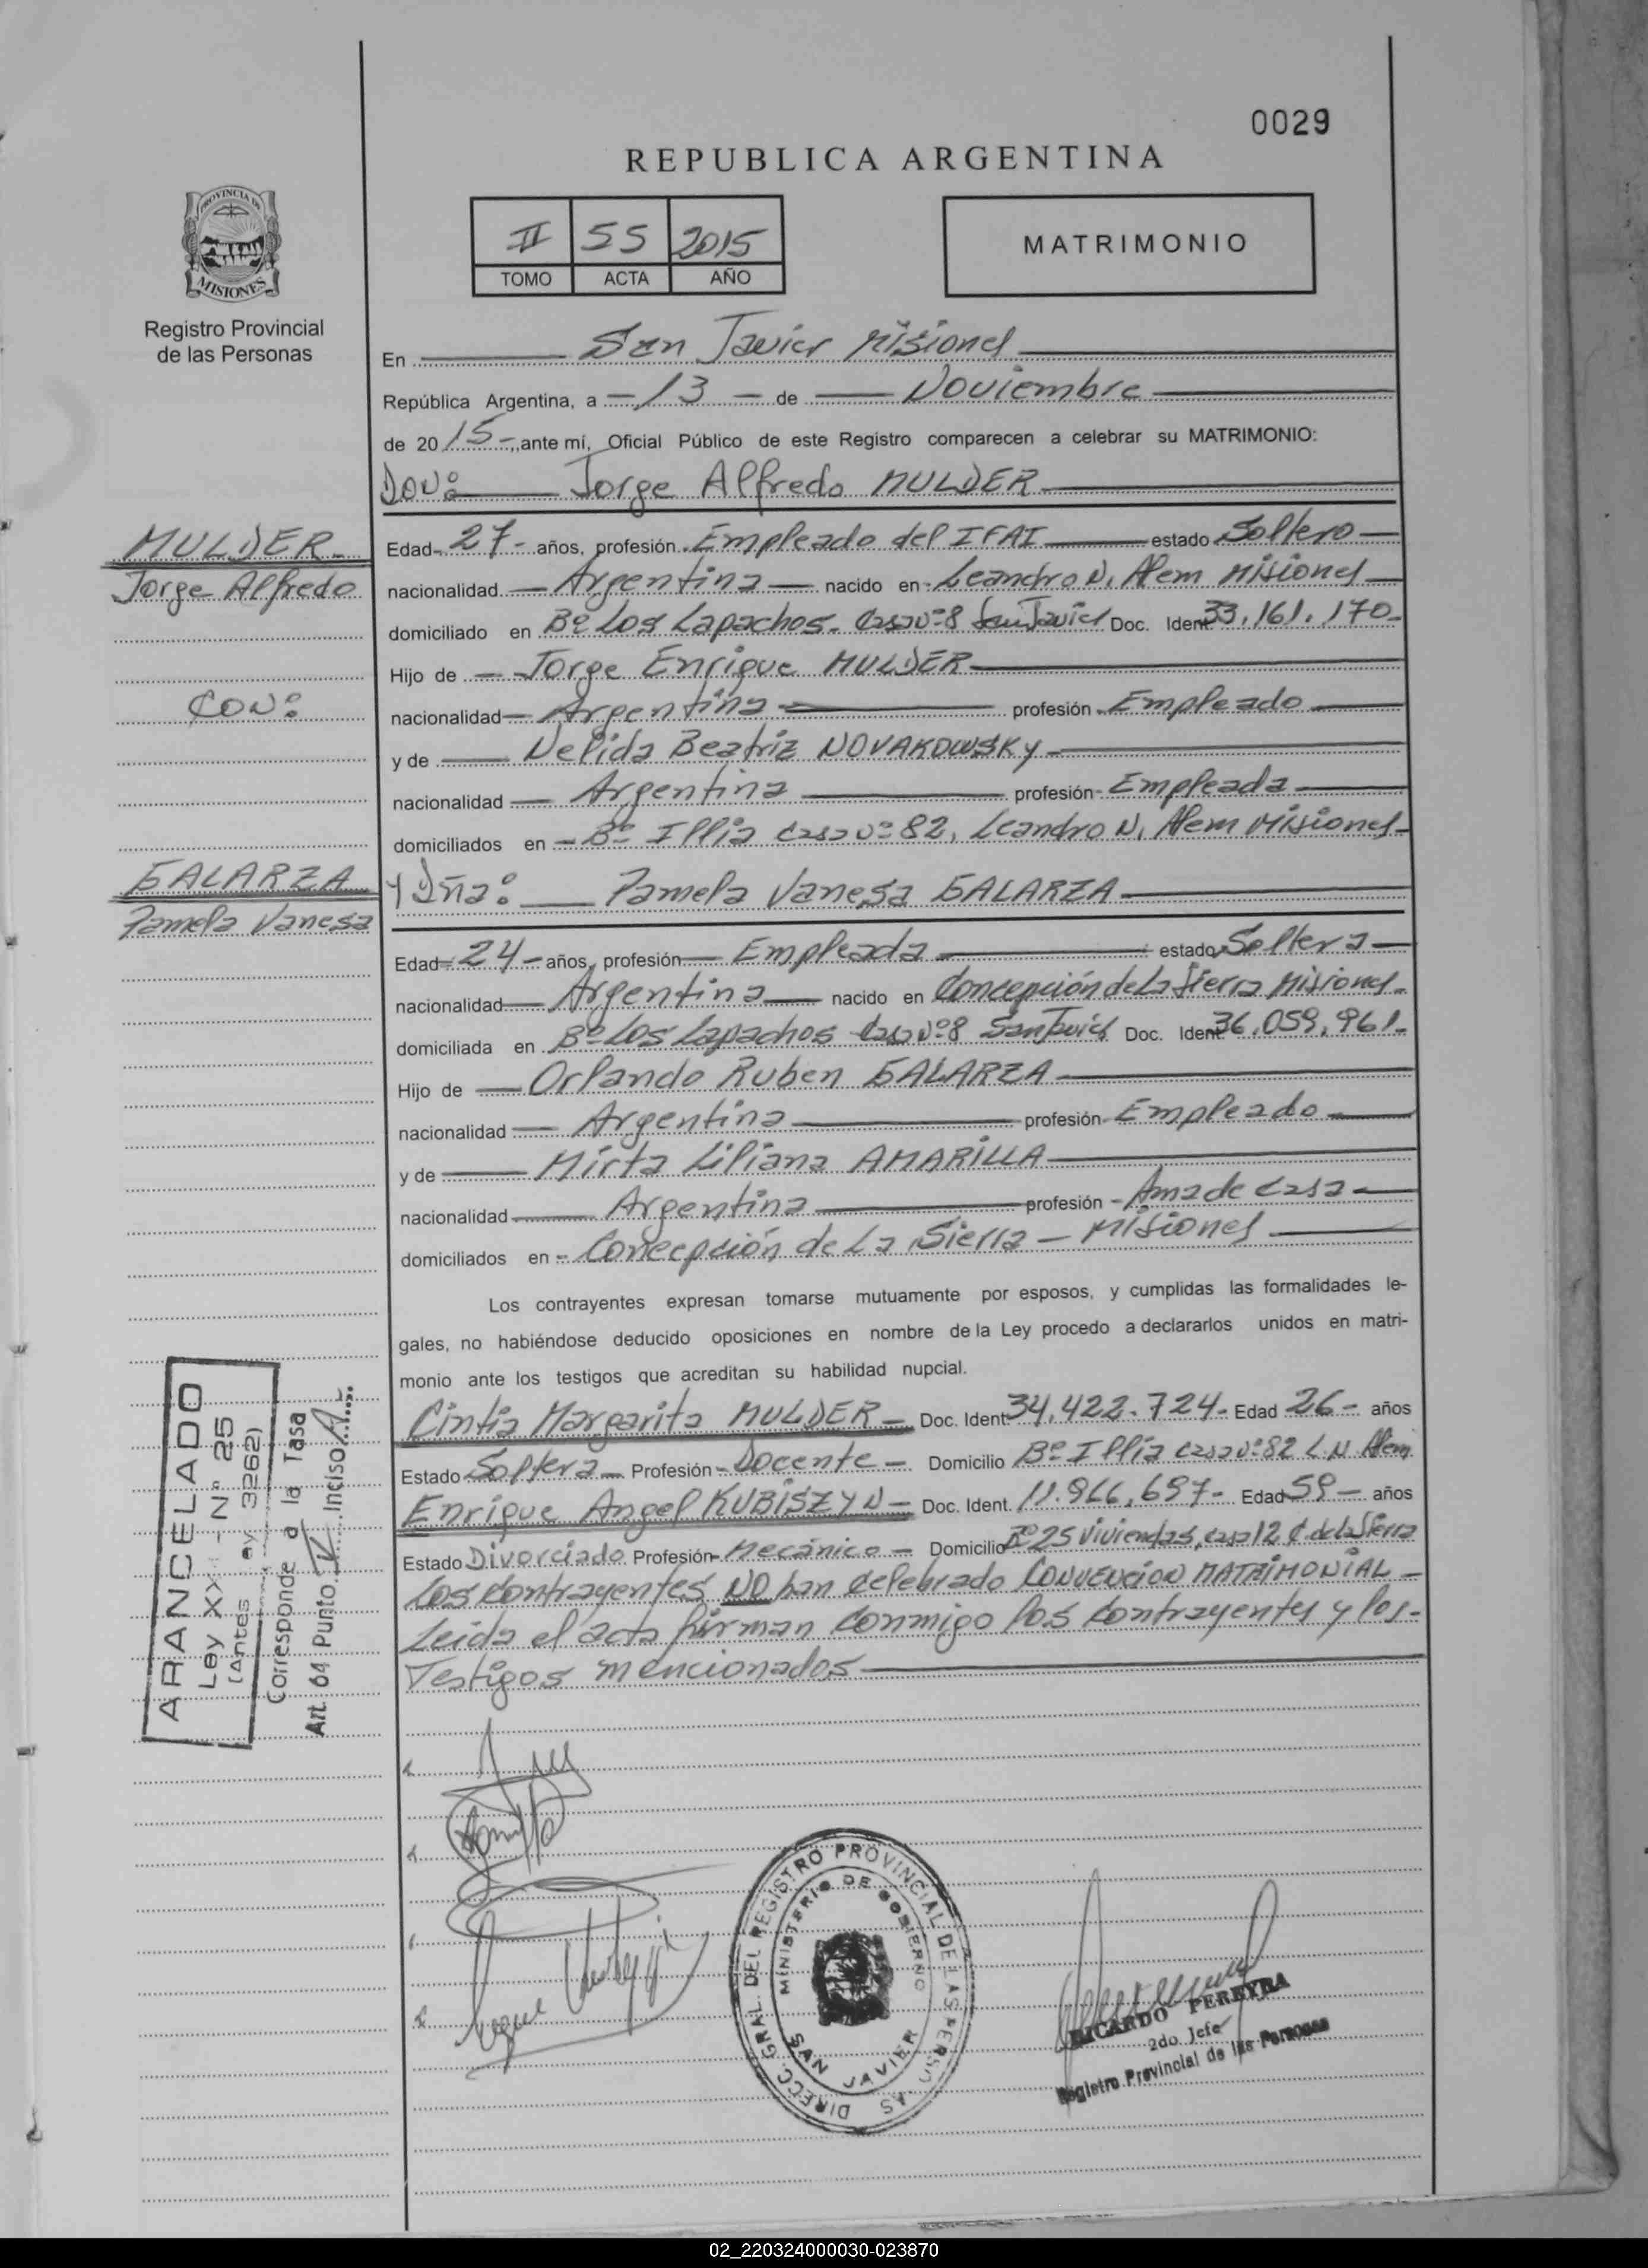 0029
REPUBLICA ARGENTINA
PROVINCIA DE
MISIONES
Registro Provincial
de las Personas
II 55 2015
TOMO ACTA AÑO
MATRIMONIO
En San Javier Misiones
República Argentina, a - 13 - de Noviembre
de 2015-, ante mí, Oficial Público de este Registro comparecen a celebrar su MATRIMONIO:
Don: Jorge Alfredo MULDER
MULDER
Jorge Alfredo
CON:
GALARZA
Pamela Vanesa
Edad 27- años, profesión Empleado del IFAI estado Soltero
nacionalidad Argentina nacido en Leandro N. Alem Misiones
domiciliado en Bº Los Lapachos. Casa nº8 San Javier Doc. Ident 33.161.170-
Hijo de Jorge Enrique MULDER
nacionalidad Argentina profesión Empleado
y de Nelida Beatriz NOVAKOWSKY
nacionalidad Argentina profesión Empleada
domiciliados en Bº Illia casa nº 82, Leandro N. Alem Misiones
Y Dña: Pamela Vanesa GALARZA
Edad 24- años, profesión Empleada estado Soltera
nacionalidad Argentina nacido en Concepción de La Sierra Misiones
domiciliada en Bº Los Lapachos Casa nº8 San Javier Doc. Ident 36.059.961-
Hijo de Orlando Ruben GALARZA
nacionalidad Argentina profesión Empleado
y de Mirta Liliana AMARILLA
nacionalidad Argentina profesión Ama de casa
domiciliados en Concepción de La Sierra - Misiones
Los contrayentes expresan tomarse mutuamente por esposos, y cumplidas las formalidades le-
gales, no habiéndose deducido oposiciones en nombre de la Ley procedo a declararlos unidos en matri-
monio ante los testigos que acreditan su habilidad nupcial.
Cintia Margarita MULDER - Doc. Ident 34.422.724- Edad 26- años
Estado Soltera Profesión Docente - Domicilio Bº Illia casa nº82 L.N. Alem
Enrique Angel KUBISZYN - Doc. Ident. 11.966.697- Edad 59- años
Estado Divorciado Profesión Mecánico - Domicilio Bº 25 Viviendas, casa 12 C. de la Sierra
Los contrayentes NO han celebrado CONVENCION MATRIMONIAL -
Leida el acta firman conmigo los contrayentes y los-
Testigos mencionados
ARANCELADO
Ley XX - Nº 25
(Antes ey 3262)
Corresponde a la Tasa
Art. 64 Punto V Inciso A
DIRECC. GRAL. DEL REGISTRO PROVINCIAL DE LAS PERSONAS
MINISTERIO DE GOBIERNO
SAN JAVIER
RICARDO PEREYRA
2do. Jefe
Registro Provincial de las Personas
02_220324000030-023870